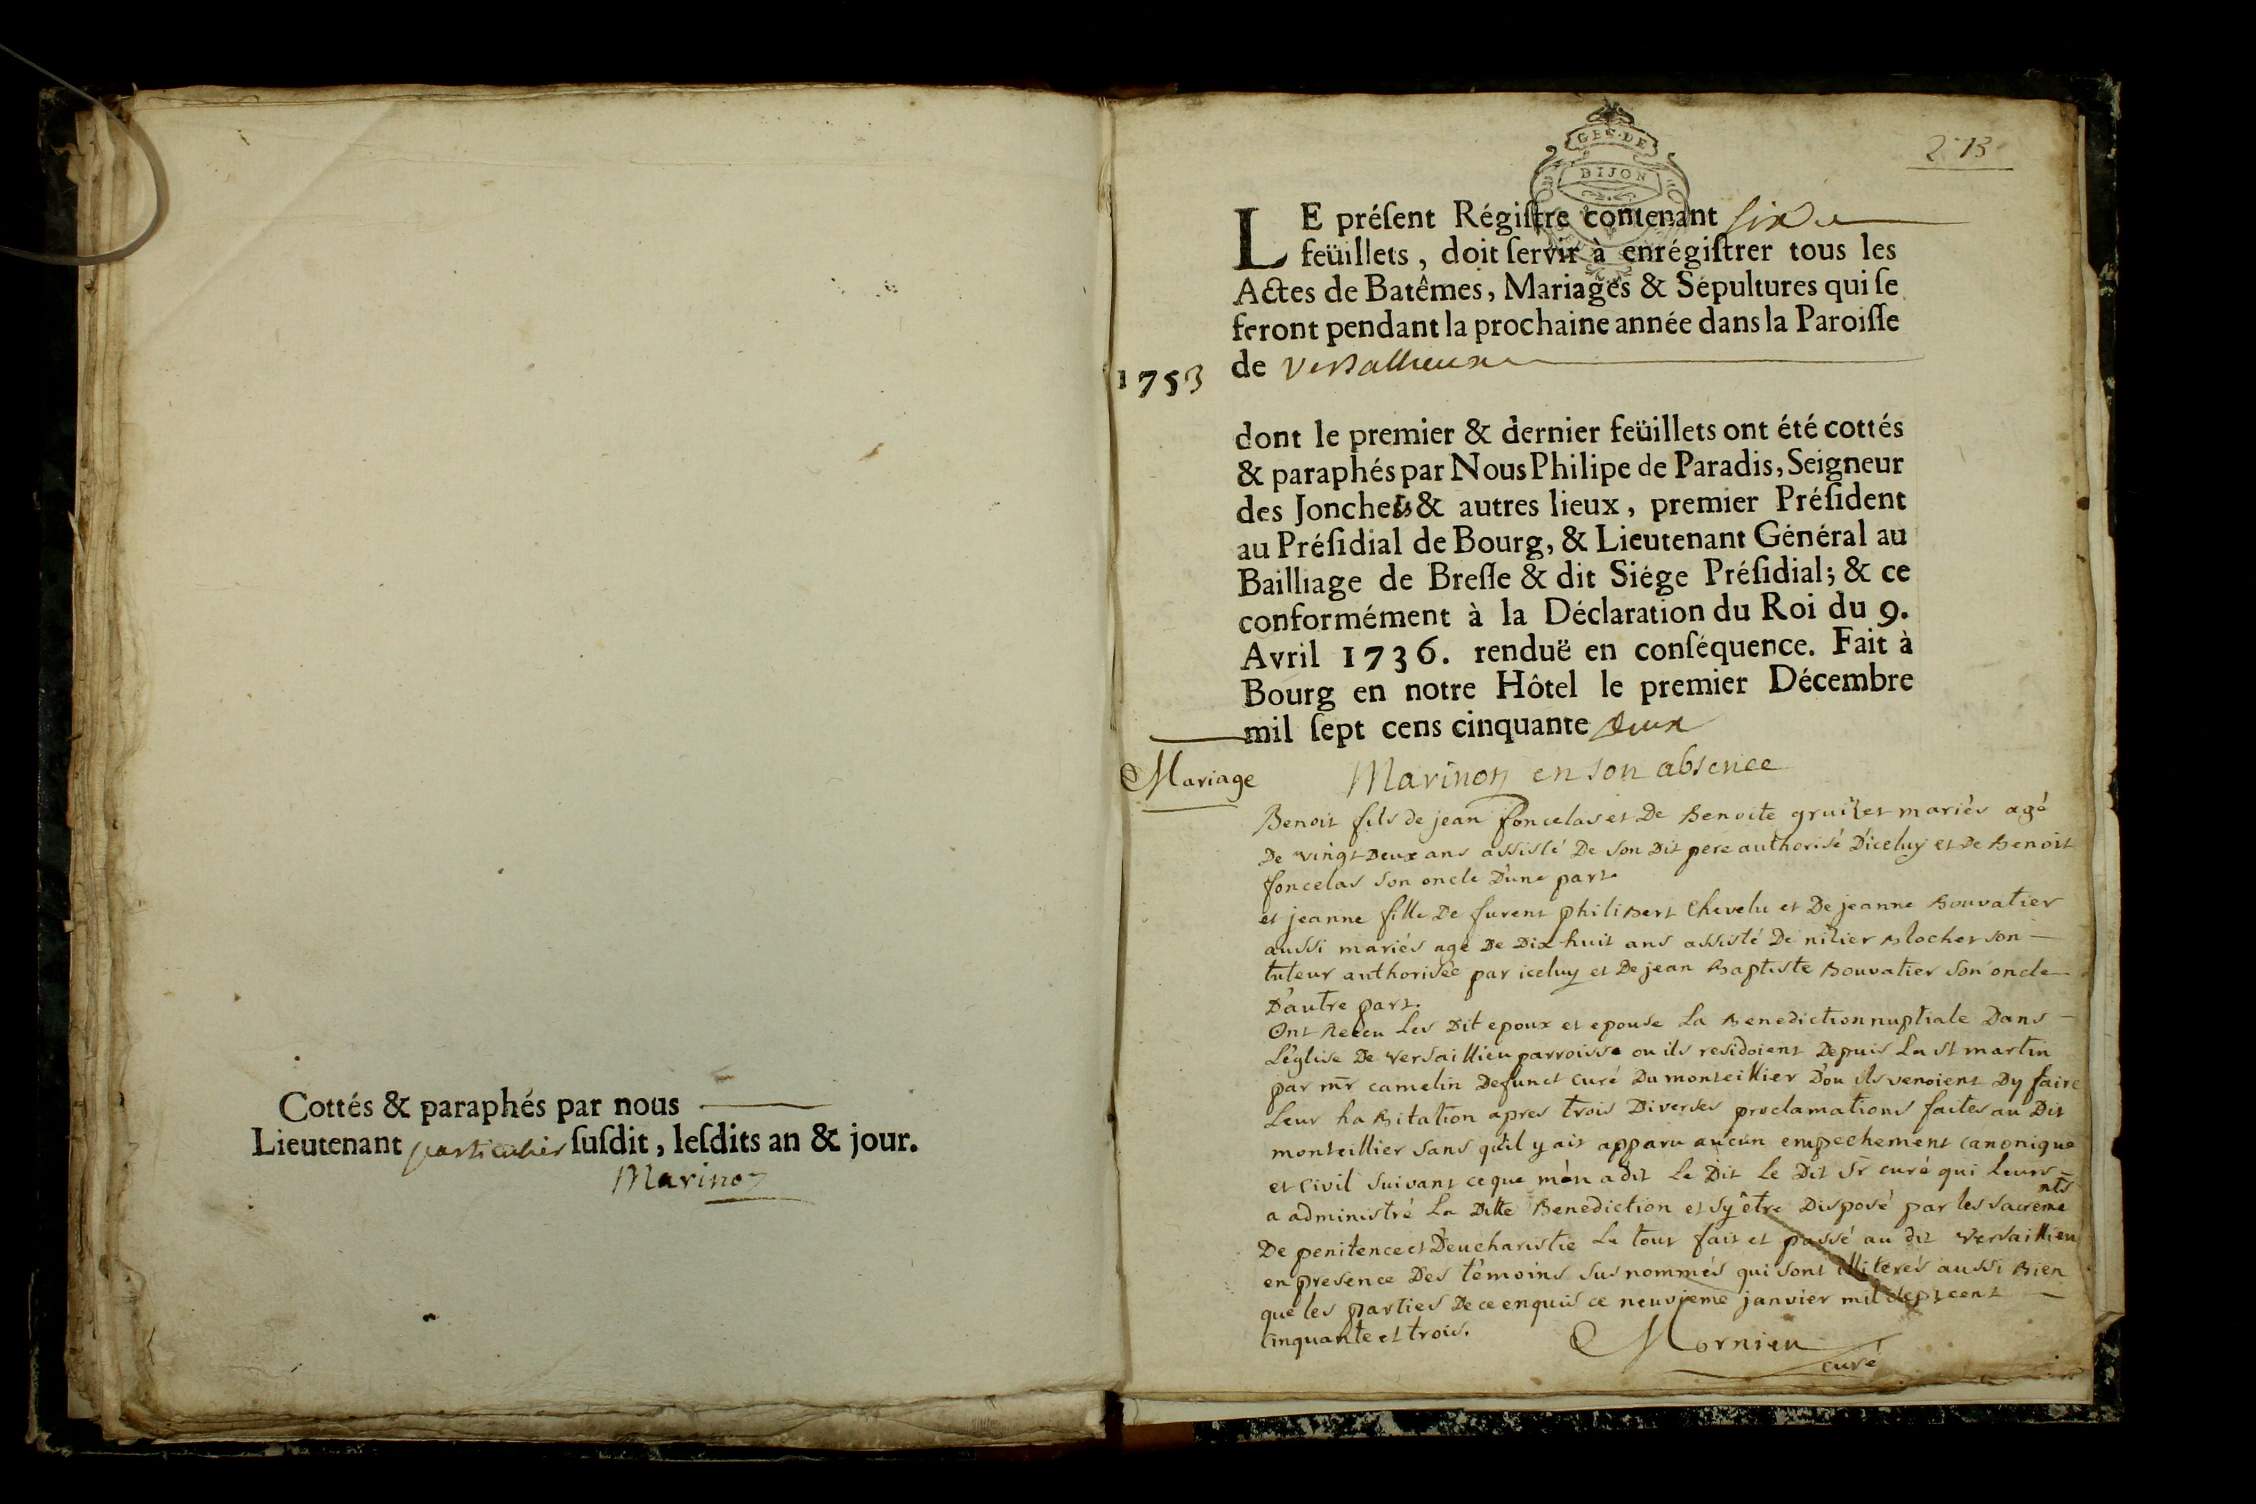 Cottés & paraphés par nous
Lieutenant particulier ſuſdit, leſdits an & jour.
Marinon
GES. DE
DIJON
273
LE préſent Régiſtre contenant six
feüillets, doit ſervir à enrégiſtrer tous les
Actes de Batêmes, Mariages & Sépultures qui ſe
feront pendant la prochaine année dans la Paroiſſe
de Versallieux
1753
dont le premier & dernier feüillets ont été cottés
& paraphés par Nous Philipe de Paradis, Seigneur
des Jonches & autres lieux, premier Préſident
au Préſidial de Bourg, & Lieutenant Général au
Bailliage de Breſſe & dit Siége Préſidial; & ce
conformément à la Déclaration du Roi du 9.
Avril 1736. renduë en conſéquence. Fait à
Bourg en notre Hôtel le premier Décembre
mil ſept cens cinquante deux
Mariage
Marinon en son absence
Benoit fils de jean foncelas et De Benoite gruilet mariés agé
De vingt Deux ans assisté De son Dit pere authorisé D'iceluy et De Benoit
foncelas son oncle D'une part
et jeanne fille De furent philibert Chevelu et De jeanne Bouvatier
aussi mariés agé De Dix huit ans assisté De nilier Blochet son
tuteur authorisée par iceluy et De jean Baptiste Bouvatier son oncle
D'autre part.
Ont Receu Les Dit epoux et epouse La Benediction nuptiale Dans
L'église De versaillieu parroisse ou ils residoient Depuis La st martin
par mr camelin Defunct curé Du monteillier D'ou ils venoient Dy faire
Leur haBitation apres trois Diverses proclamations faites au Dit
monteillier sans qu'il y ait apparu aucun empechement canonique
et Civil suivant ce que m'en a dit Le Dit Le Dit Sr curé qui leurs
a administré La Ditte Benediction et sy être Disposé par les sacrements
De penitence et D'eucharistie Le tout fait et passé au dit versaillieu
en presence Des témoins sus nommés qui sont illiterés aussi Bien
que les parties De ce enquis ce neuvieme janvier mil sept cent
Cinquante et trois.
Mornieu
curé